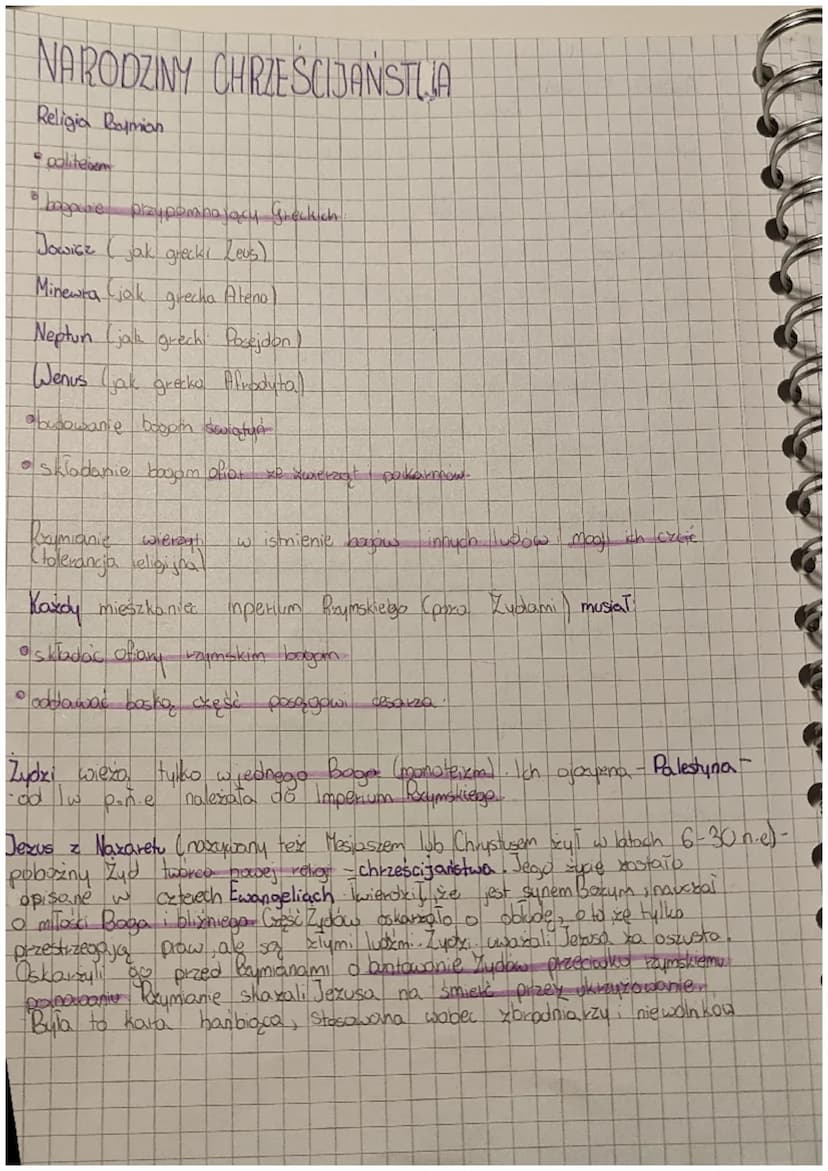 NARODZINY CHRZEŚCIJAŃSTWA
Religia Rzymian
• politeizm
• bogowie przypominający Greckich
Jowisz (jak grecki Zeus)
Minewra (jak grecka Ateno)
Neptun (jak grecki Posejdon)
Wenus (jak grecka Afrodyta)
• budowanie bogom świątyń
• składanie bogom ofiar ze zwierząt i pokarmów
Rzymianie wierzyli w istnienie bogów innych ludów i mogli ich czcić
(tolerancja religijna)
Każdy mieszkaniec inperium Rzymskiego (poza Żydami) musiał:
• składać ofiary rzymskim bogom
• oddawać boską cześć posągowi cesarza.
Żydzi wieżą tylko w jednego Boga (monoteizm). Ich ojczyzna - Palestyna -
- od I w p.n.e należała do Imperium Rzymskiego
Jezus z Nazaretu (nazywany też Mesjaszem lub Chrystusem żył w latach 6-30 n.e) -
pobożny Żyd twórca nowej religi - chrześcijaństwa. Jego życie zostało
opisane w czterech Ewangeliach twierdził, że jest synem Bożym, nauczał
o miłości Boga i bliźniego Część Żydów oskarżało o obłudę, o to że tylko
przestrzegają praw, ale są złymi ludźmi. Żydzi uważali Jezusa za oszusta.
Oskarżyli go przed Rzymianami o buntowanie Żydów przeciwko rzymskiemu
panowaniu Rzymianie skazali Jezusa na śmierć przez ukrzyżowanie.
Była to kara hańbiąca, stosowana wobec zbrodniarzy i niewolnków